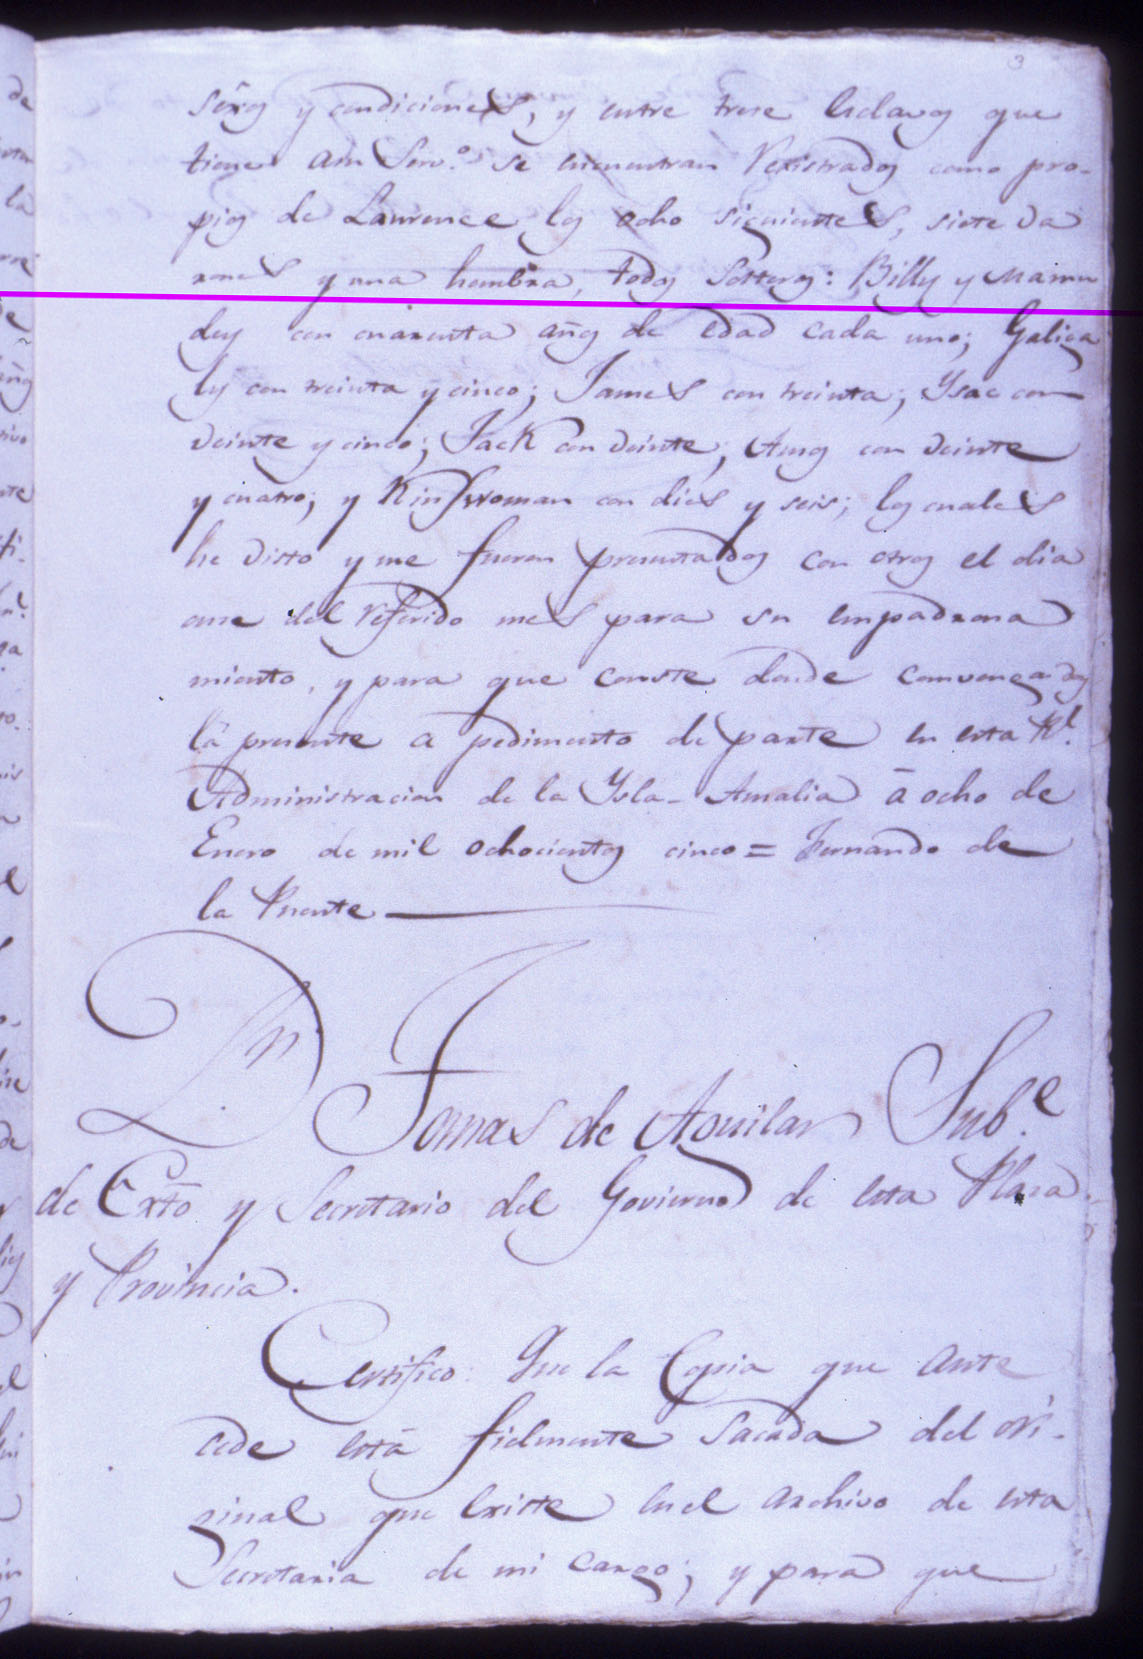 3
sexos y condiciones, y entre trese Esclavos que
tiene a su Serv.o se encuentran Rexistrados como pro-
pios de Laurence los ocho siguientes, siete va
rones y una hembra, todos Solteros: Billy y Mamu
dey con cuarenta años de edad cada uno; Galiga
ly con treinta y cinco; James con treinta; Ysac con
veinte y cinco; Jack con veinte; Amos con veinte
y cuatro; y Kinswoman con dies y seis; los cuales
he visto y me fueron presentados con otros el dia
onse del referido mes para su empadrona
miento, y para que conste donde convenga doy
la presente a pedimento de parte en esta Rl.
Administracion de la Ysla-Amalia â ocho de
Enero de mil ochocientos cinco = Fernando de
la Puente
Dn. Tomas de Aguilar Sub.e
de Exto y Secretario del Govierno de esta Plaza
y Provincia.
Certifico: Que la Copia que ante
cede está fielmente Sacada del ori-
ginal que Existe en el archivo de esta
Secretaria de mi cargo; y para que